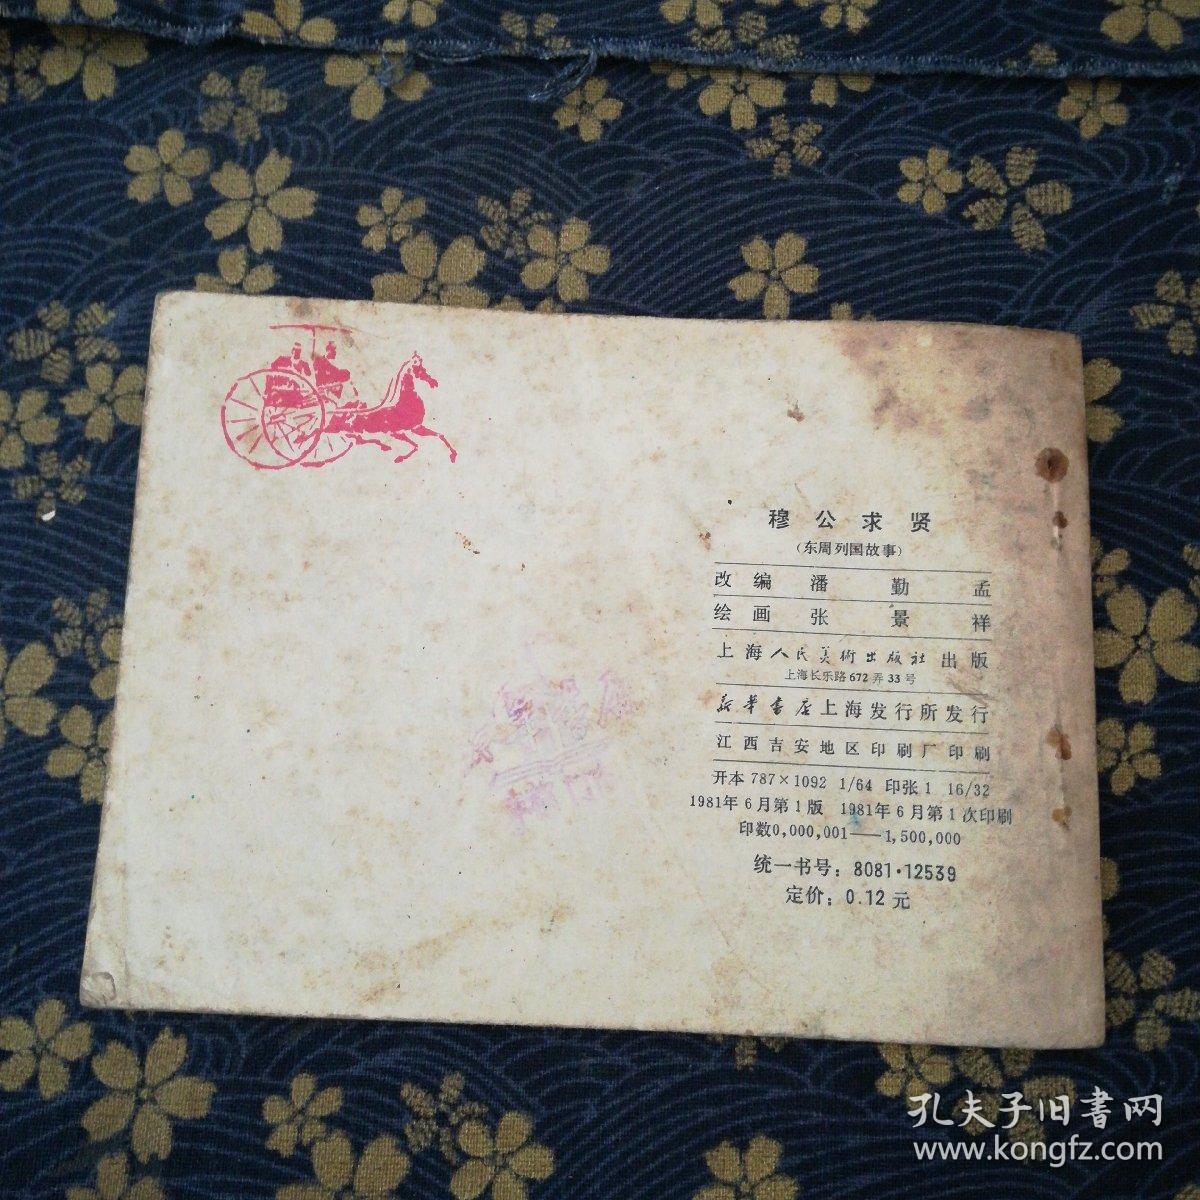 穆公求贤
(东周列国故事)
改编 潘勤孟
绘画 张景祥
上海人民美術出版社出版
上海长乐路672弄33号
新华书店上海发行所发行
江西吉安地区印刷厂印刷
开本 787×1092 1/64 印张 1 16/32
1981年6月第1版 1981年6月第1次印刷
印数0,000,001——1,500,000
统一书号：8081·12539
定价：0.12 元
孔夫子旧書网
www.kongfz.com